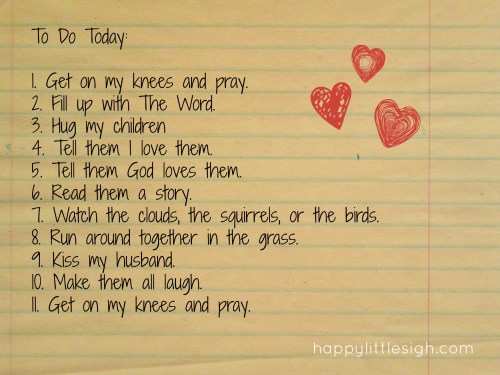 To Do Today:
1. Get on my knees and pray.
2. Fill up with The Word.
3. Hug my children
4. Tell them I love them.
5. Tell them God loves them.
6. Read them a story.
7. Watch the clouds, the squirrels, or the birds.
8. Run around together in the grass.
9. Kiss my husband.
10. Make them all laugh.
11. Get on my knees and pray.
happylittlesigh.com